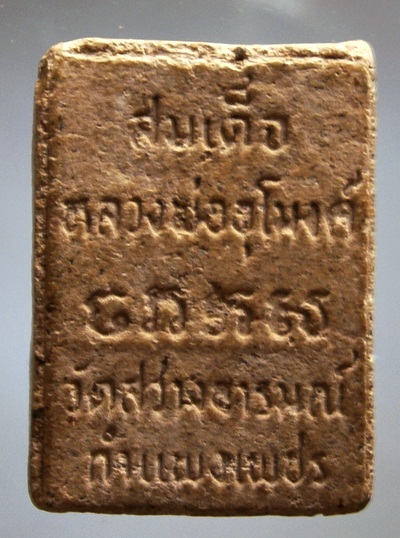 สมเด็จ
หลวงพ่ออุโมงค์
วัดสว่างอารมณ์
กำแพงเพชร